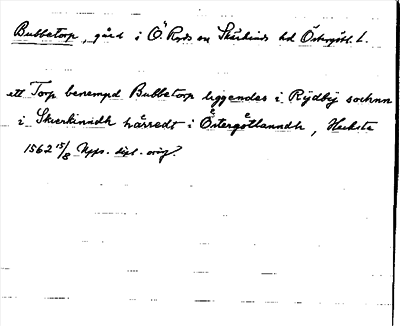 Bubbetorp, gård i Ö Ryds sn Skärkinds hd Östergötl. L.
ett Torp benempd Bubbetorp liggendes i Rÿdbÿ sochnn
i Skierkinndh hårredt i Östergötlanndh, Hecksta
1562 15/8 Upps. dipl. orig.